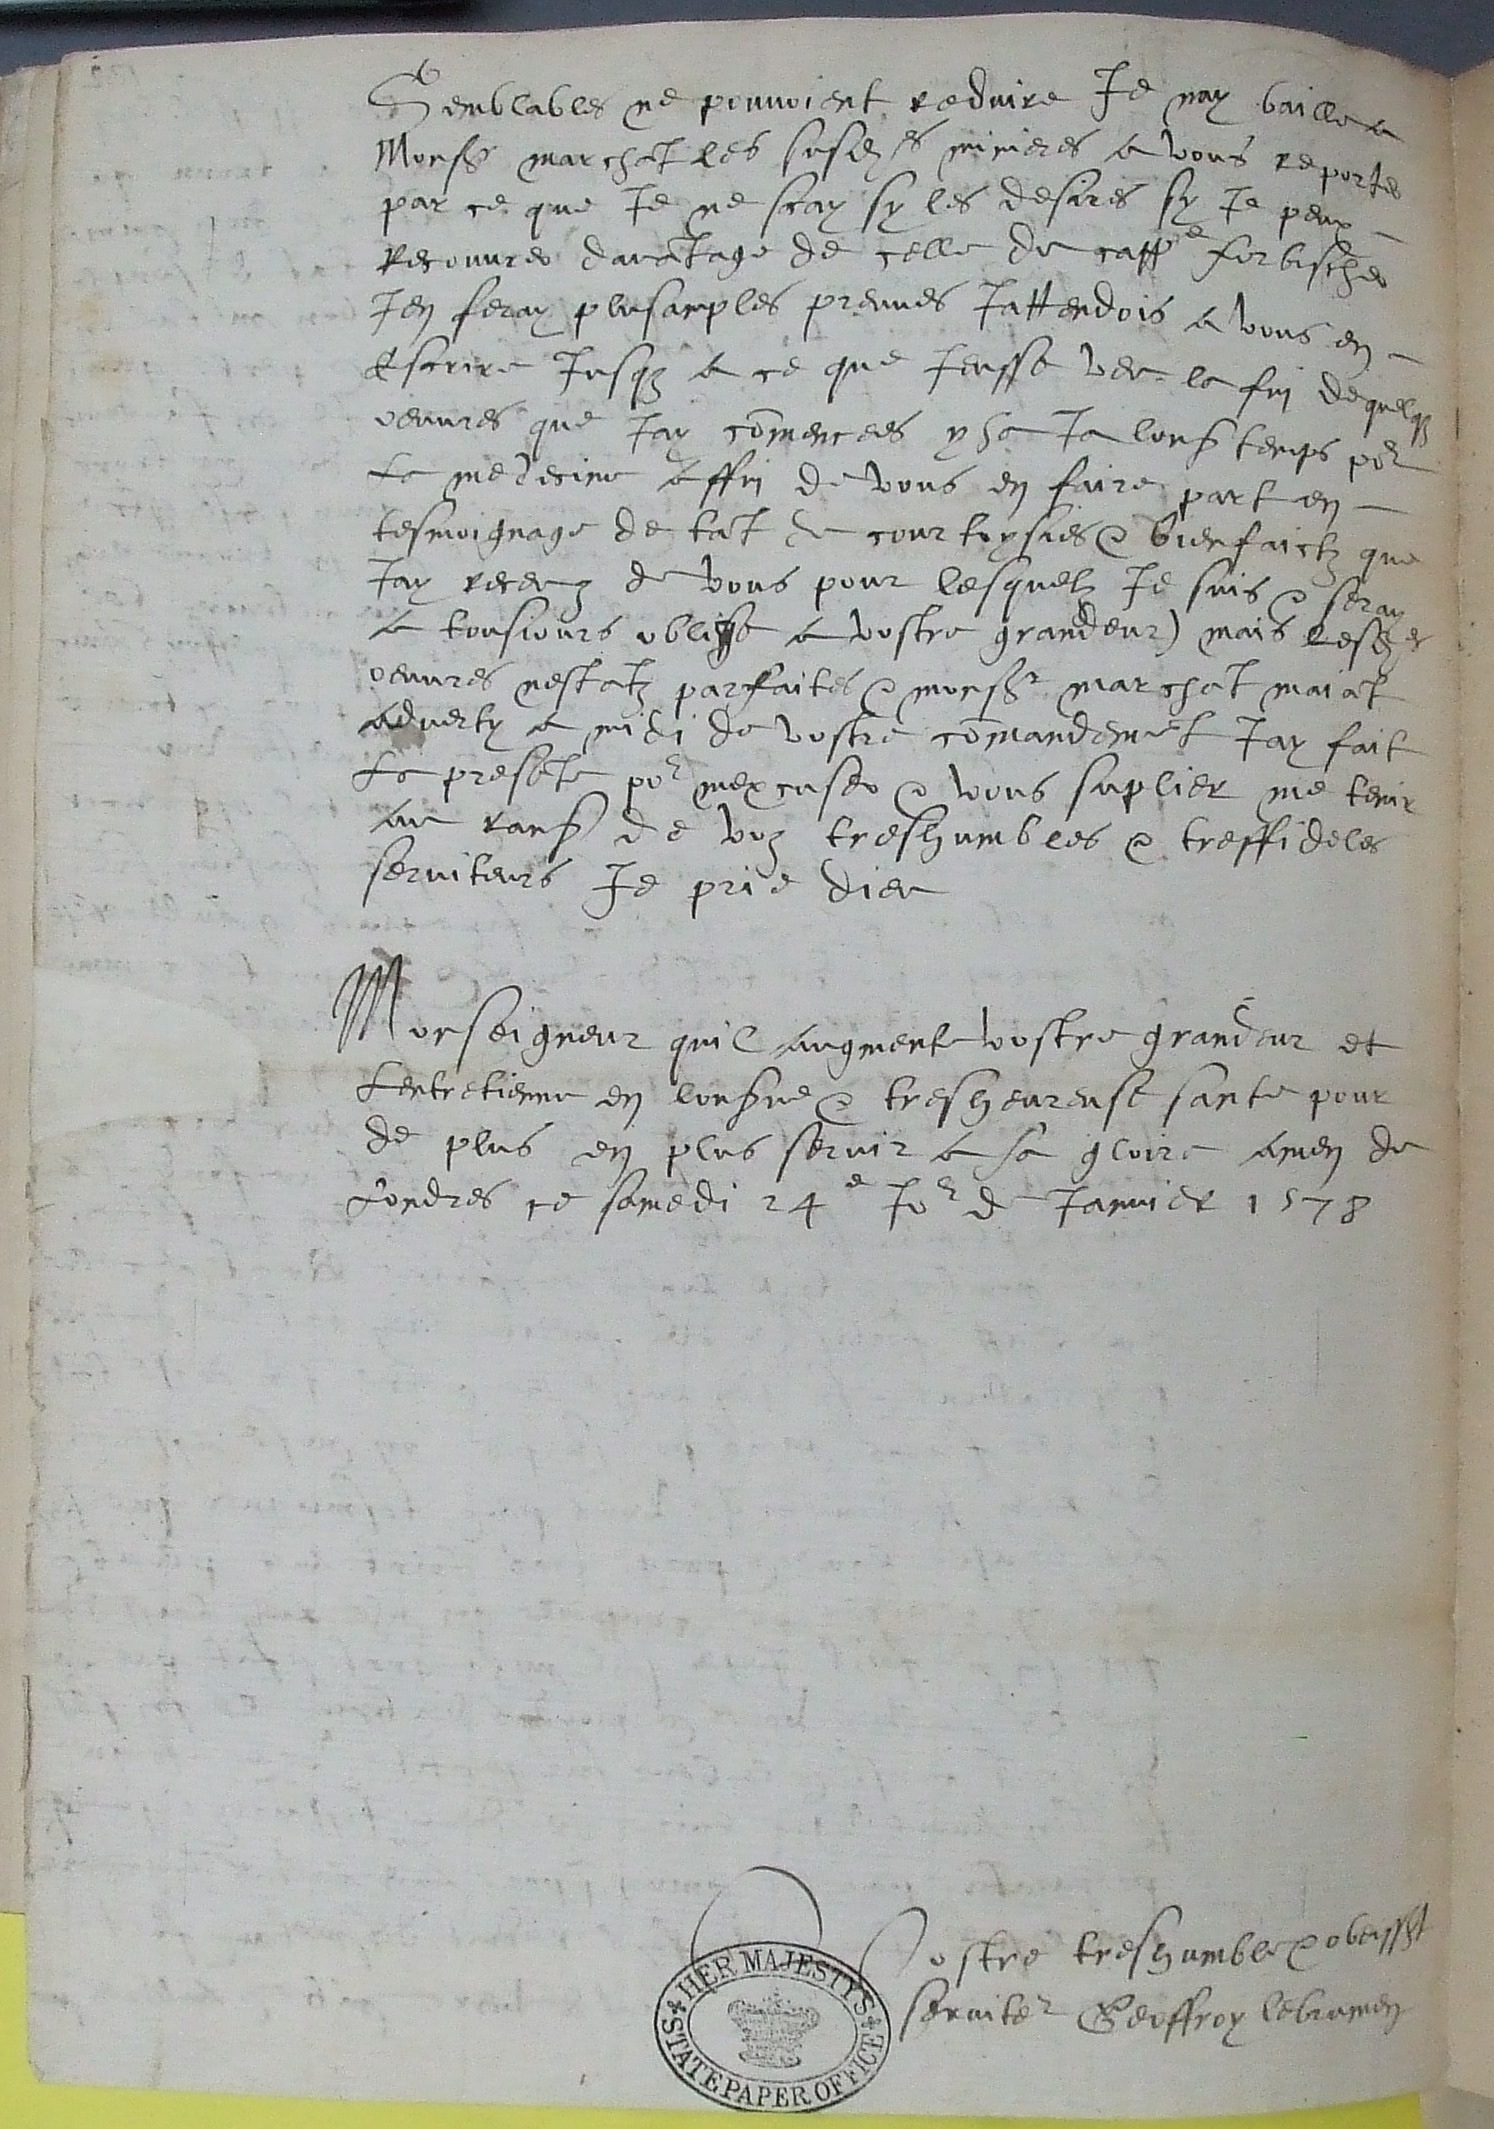 Semblables ne pouvoient reduire Je nay baille a
Monsr marchāt les susd.es minieres a vous reporter
par ce que Je ne scay sy les desires sy Je peux
Recouvrer davātage de celle de cappe forbischer
Jen feray plusamples preuves Jattendois a vous en
Escrire Jusqz a ce que Jeusse veu la fin de quelqz
oeuvres que Jay cōmencees y ha Ja long temps por
La medecine affin de vous en faire part en
tesmoignage de tāt de courtoysies & bienfaictz que
Jay receuz de vous pour lesquelz Je suis & seray
a tousiours oblige a vostre grandeur) mais lesd.es
oeuvres nestātz parfaites & monsr marchāt maiāt
adverty a midi de vostre cōmandemēt Jay fait
La presēte por mexcuser & vous suplier me tenir
au rang de voz treshumbles & tresfideles
serviteurs Je prie dieu
Monseigneur quil augmente vostre grandeur et
Lentretienne en longue & tresheureuse sante pour
de plus en plus servir a sa gloire amen de
Londres ce samedi 24e Jor de Janvier 1578
Vostre treshumble & obeissāt
serviter Geoffroy lebrumen
HER MAJESTY'S
STATE PAPER OFFICE